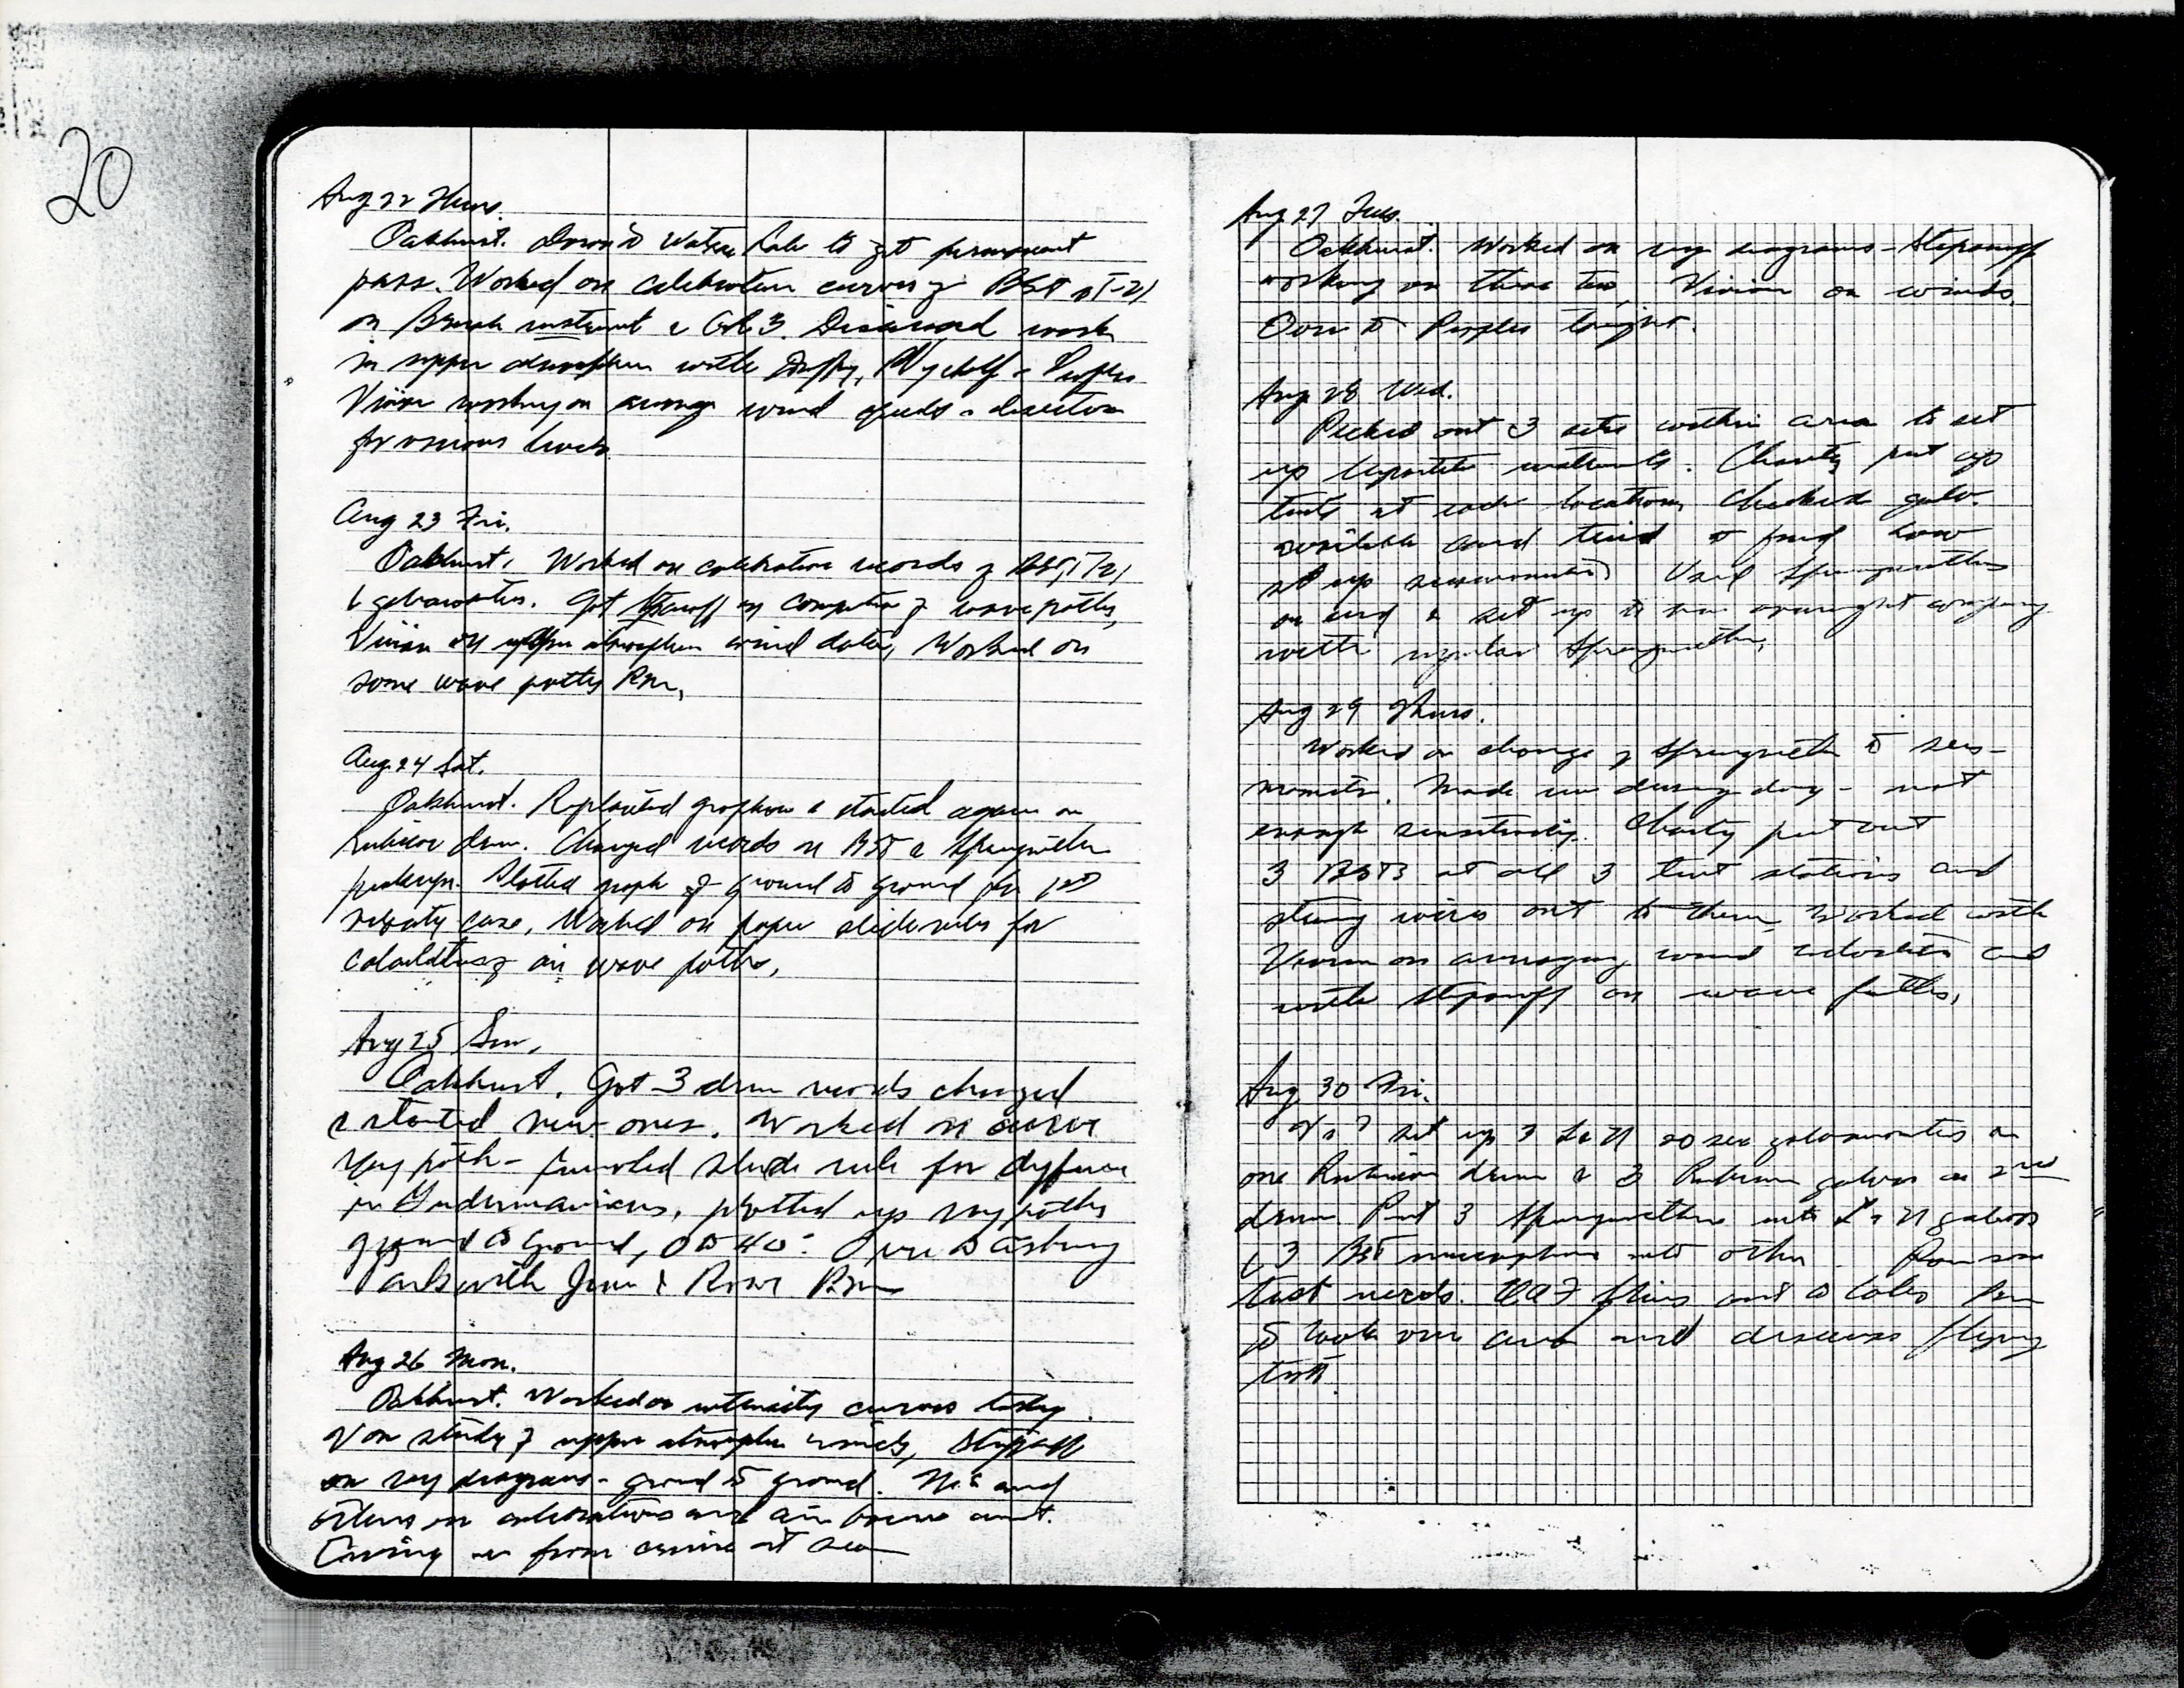 20
Aug 22 Thurs.
Oakhurst. Down to Watson Labs to get permanent
pass. Worked on calibration curves of BST & T-21
on Brush instrument & Gal 3. Discussed work
in upper atmosphere with Duffy, Wyckoff & Peoples
Vivian working on average wind speeds & direction
for various levels
Aug 23 Fri.
Oakhurst. Worked on calibration records of BST, T21
& galvanometers. Got Stepanoff on computation of wave paths,
Vivian on upper atmosphere wind data, Worked on
some wave paths P.M.
Aug 24 Sat.
Oakhurst. started again on
Rubicon drum. Changed records on BST & Sprengnether
Plotted graph of ground to ground for 1st
velocity case, Worked on paper slide rules for
air wave paths,
Aug 25 Sun.
Oakhurst. Got 3 drum records changed
& started new ones. Worked on
ray path - slide rule for
in plotted up ray paths
ground to ground, 0 to 40°. Over to Asbury
Park with June & P.M.
Aug 26 Mon.
Oakhurst. Worked on intensity curves today.
V on study of upper atmosphere winds, Stepanoff
on ray diagrams - ground to ground. and
others on calibrations and air borne
from at sea
Aug 27 Tues.
Oakhurst. Worked on ray diagrams - Stepanoff
working on these too, Vivian on winds.
Over to Peoples tonight.
Aug 28 Wed.
Picked out 3 sites within area to set
up tripartite instruments. Charity put up
tents at each location, Checked galv.
available and tried to find how
set up Used Sprengnether
on end & set up to run overnight company
with regular Sprengnether,
Aug 29 Thurs.
Worked on change of Sprengnether to seis-
mometer. Made run during day - not
enough sensitivity. Charity put out
3 BSTs at all 3 tent stations and
strung wires out to them, Worked with
Vivian on averaging wind velocities and
with Stepanoff on wave paths,
Aug 30 Fri.
set up 3 L & N 20 sec galvanometers on
one Rubicon drum & 3 Rubicon galvos on 2nd
drum. Put 3 Sprengnethers into L & N galvos
& 3 BST microphones into other. Ran some
test records. out to Labs
to look over area and discuss flying
test.